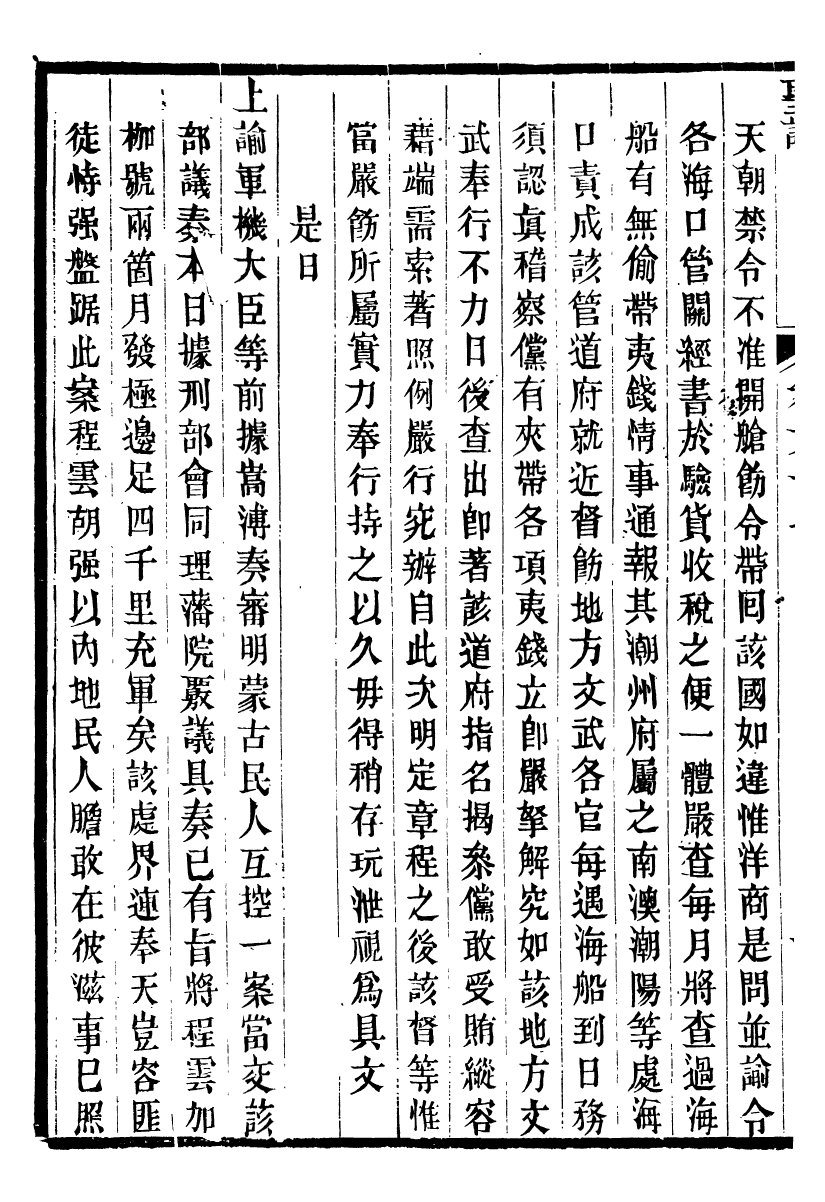 天朝禁令不准開艙飭令帶回該國如違惟洋商是問並諭令
各海口管關經書於驗貨收稅之便一體嚴查每月將查過海
船有無偷帶夷錢情事通報其潮州府屬之南澳潮陽等處海
口責成該管道府就近督飭地方文武各官每遇海船到日務
須認眞稽察儻有夾帶各項夷錢立卽嚴拏解究如該地方文
武奉行不力日後查出卽著該道府指名揭參儻敢受賄縱容
藉端需索著照例嚴行究辦自此次明定章程之後該督等惟
當嚴飭所屬實力奉行持之以久毋得稍存玩泄視爲具文
是日
上諭軍機大臣等前據嵩溥奏審明蒙古民人互控一案當交該
部議奏本日據刑部會同理藩院覈議具奏已有旨將程雲加
枷號兩箇月發極邊足四千里充軍矣該處界連奉天豈容匪
徒恃强盤踞此案程雲朝强以內地民人膽敢在彼滋事已照